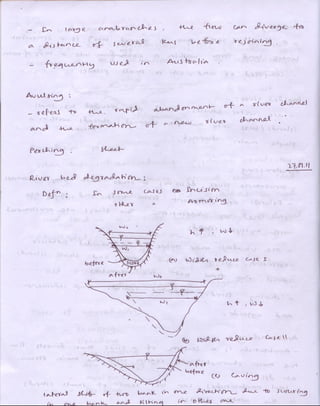 - In large anabranches, the flow can diverge to
a distance of several kms before rejoining
- frequently used in Australia
Avulsing :
- refers to the rapid abandonment of a river channel
and the formation of a new river channel.
Perching : sheet
River bed degradation :
Defn : In some cases Incision
other Armoring
h↑, w↓
before
after
(a) Width reduce case I
h↑, w↓
(b) Width reduce case II
after
before
(c) Caving
lateral shift of two bank in one direction due to scouring
in one bank and filling in other one